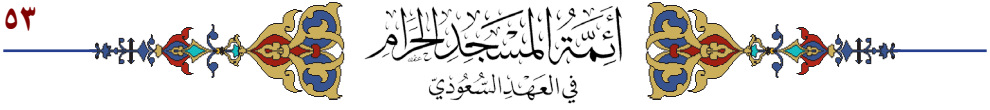 ٥٣
أَئِمَّةُ المَسْجِدِ الحَرَامِ
في العَهْدِ السُّعُودِيّ